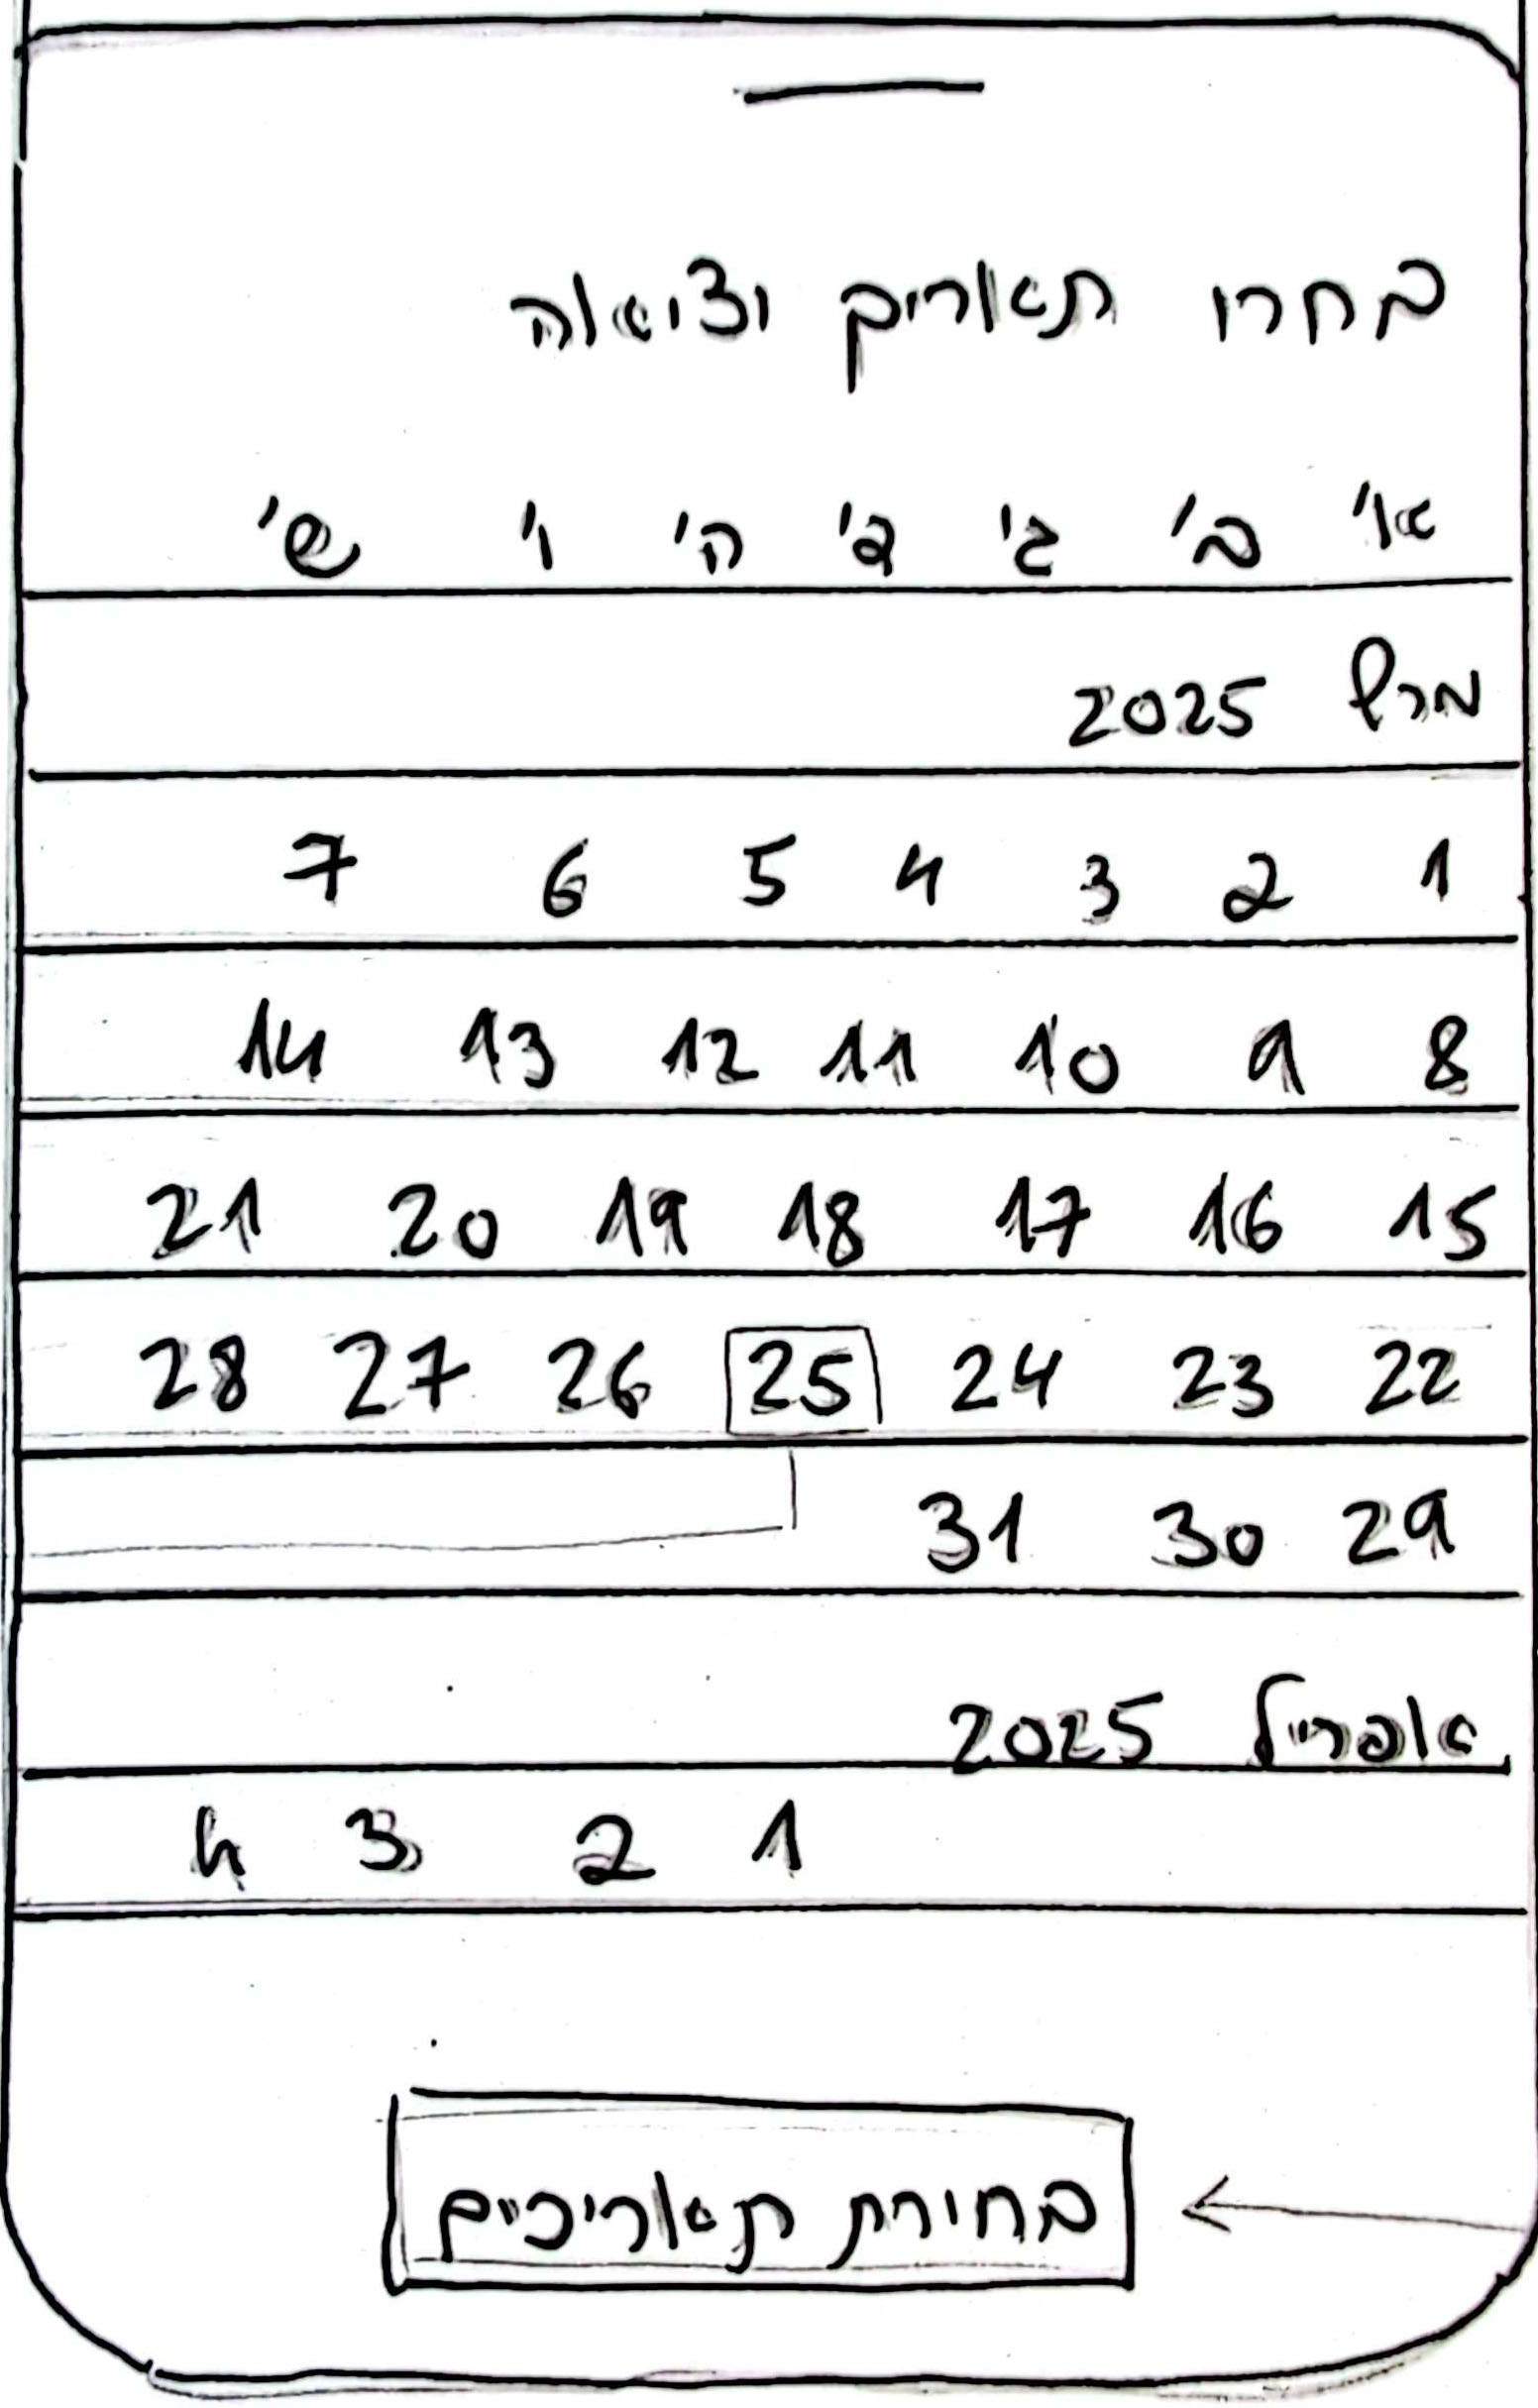 בחרו תארים וציאה
א' ב' ג' ד' ה' ו' ש'
מרץ 2025
1 2 3 4 5 6 7
8 9 10 11 12 13 14
15 16 17 18 19 20 21
22 23 24 25 26 27 28
29 30 31
אפריל 2025
1 2 3 4
בחורת תאריכיים